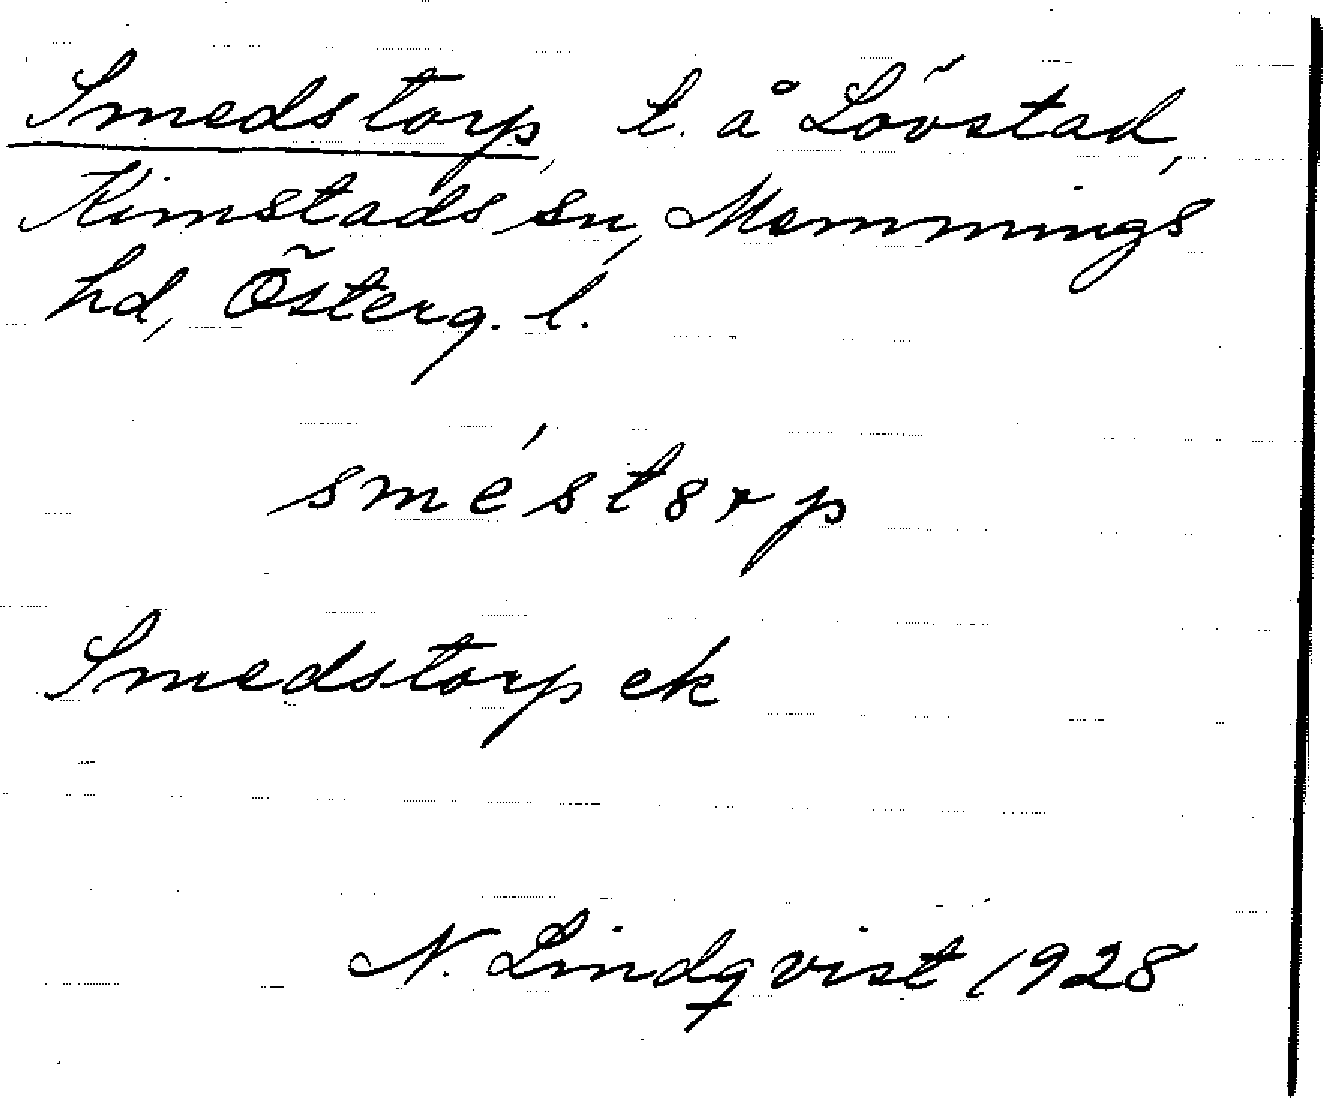 Smedstorp, t. å Lövstad,
Kimstads sn, Memmings
hd, Österg. l.
sméstorp
Smedstorp ek
N. Lindqvist 1928